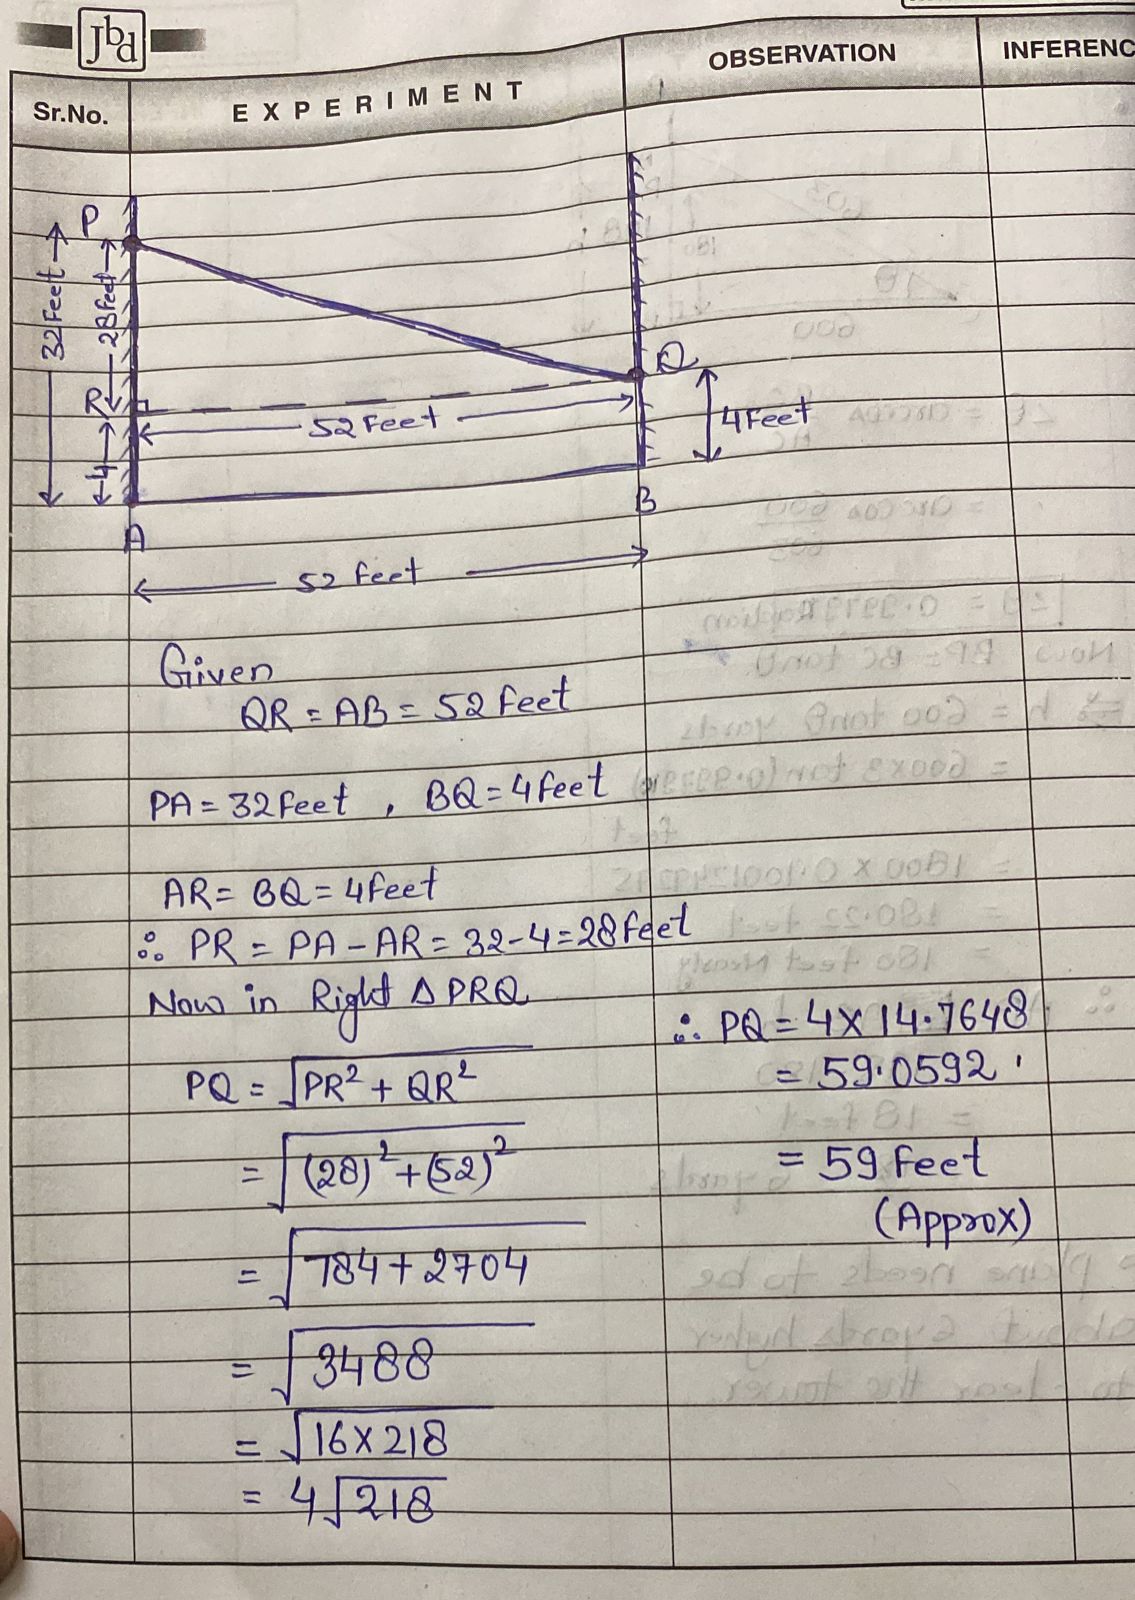 Jbd
Sr.No.
EXPERIMENT
OBSERVATION
INFERENC
P
32 Feet
28 feet
R
52 Feet
Q
4 Feet
4
A
B
52 feet
Given
QR = AB = 52 feet
PA = 32 feet , BQ = 4 feet
AR = BQ = 4 feet
∴ PR = PA - AR = 32 - 4 = 28 feet
Now in Right Δ PRQ
PQ = √PR² + QR²
= √(28)² + (52)²
= √784 + 2704
= √3488
= √16 × 218
= 4√218
∴ PQ = 4 × 14.7648
= 59.0592
= 59 feet
(Approx)